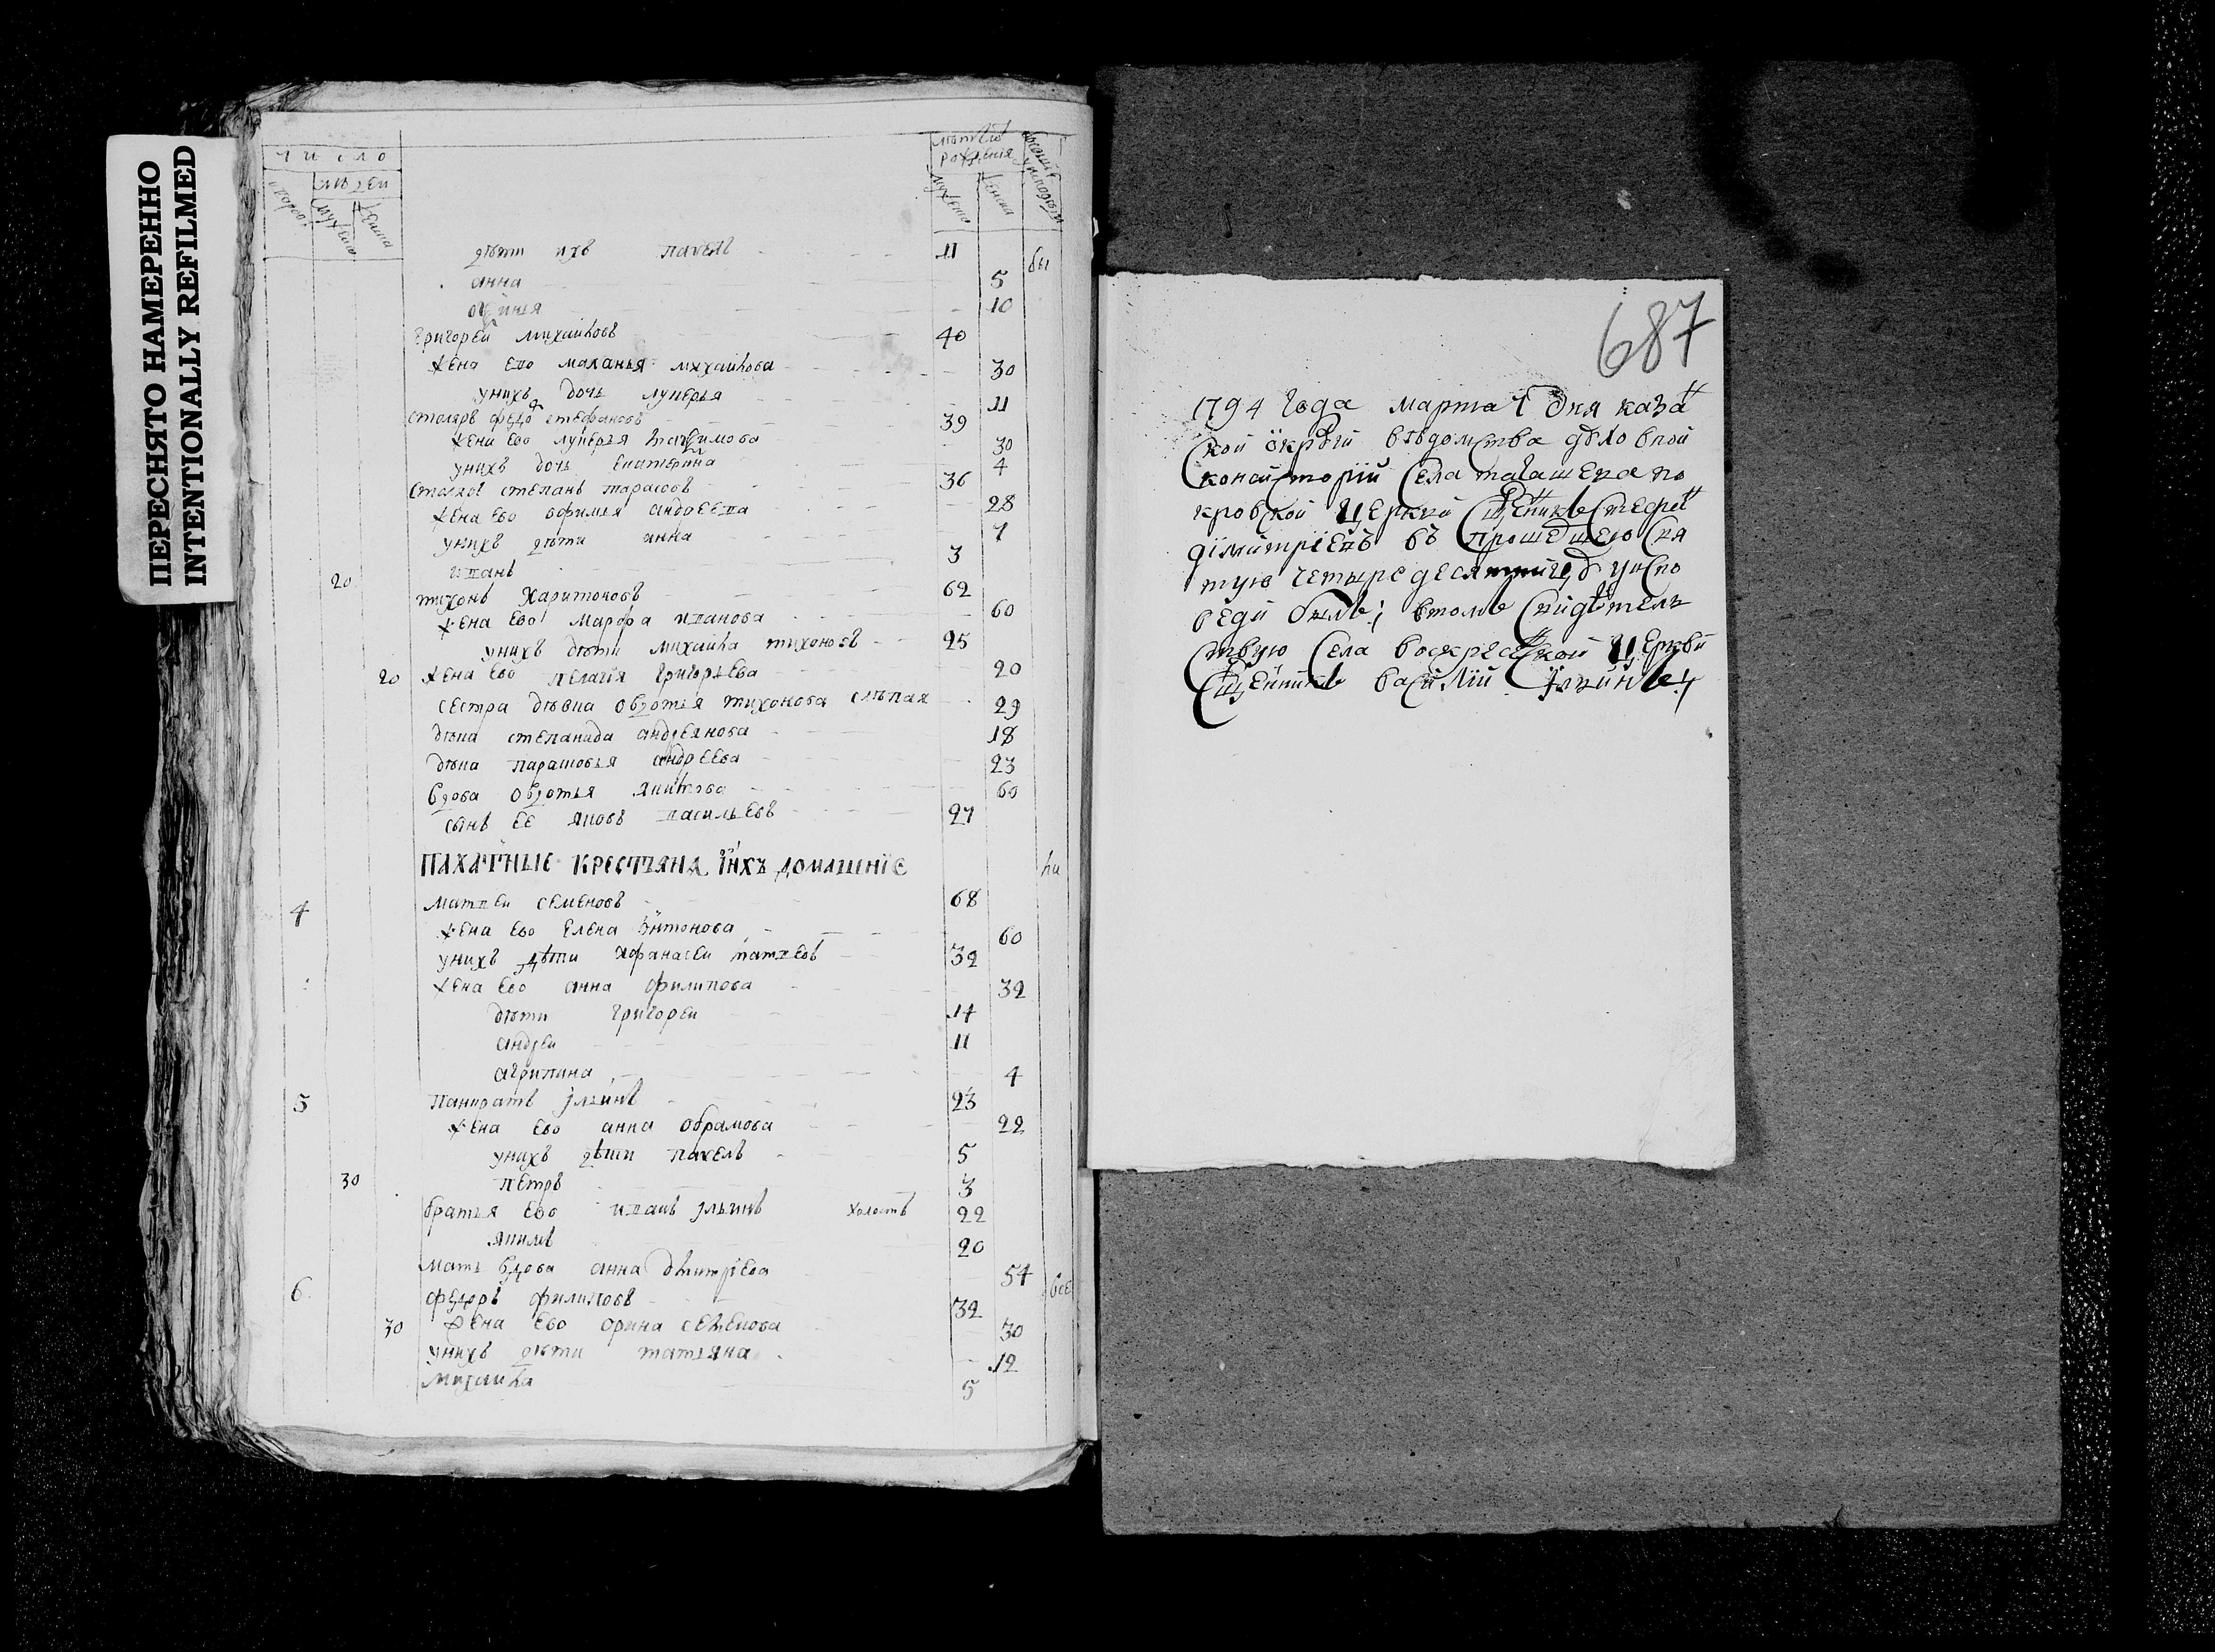 ПЕРЕСНЯТО НАМЕРЕННО
INTENTIONALLY REFILMED
число
людей
мужеска
женска
рождения
мужеска
женска
дѣти ихъ павелъ 11 бы
анна 5
10
григорей михаиловъ 40
жена ево маланья михаилова 30
унихъ дочь лукерья 11
столяръ федо стефановъ 39
жена ево лукерья 30
унихъ дочь екатерина 4
столяръ степанъ тарасовъ 36
жена ево офимья андреева 28
унихъ дѣти анна 7
иванъ 3
20 тихонъ харитоновъ 62
жена ево марфа иванова 60
унихъ дѣти михаила тихоновъ 25
20 жена ево пелагѣя григорьева 20
сестра дѣвка овдотья тихонова слѣпая 29
дѣвка степанида андреянова 18
дѣвка парасковья андреева 23
вдова овдотья 60
сынъ ее яковъ васильевъ 27
ПАХАТНЫЕ КРЕСТЬЯНА ІИХЪ ДОМАШНІЕ ли
4 матвеи семеновъ 68
жена ево елена антонова 60
унихъ дѣти афанасеи матвеевъ 32
жена ево анна филипова 32
дѣти григореи 14
андреи 11
агрипина 4
5 панкратъ ильинъ 23
жена ево анна обрамова 22
унихъ дѣти павелъ 5
30 петръ 3
братья ево иванъ ильинъ холостъ 22
якимъ 20
мать вдова анна дмитріева 54
6 федоръ филиповъ 32 все
30 жена ево орина семенова 30
унихъ дѣти татьяна 12
михаила 5
687
1794 года марта 1 дня каза
ской округи вѣдомства духовной
консисторіи села талашева по
кровской церкви сщенникъ стефа
димитріевъ въ прошедшею свя
тую четыредесятницу уиспо
веди былъ; втомъ свидѣтель
ствую села воскресенской церкви
сщенникъ василій ильинъ